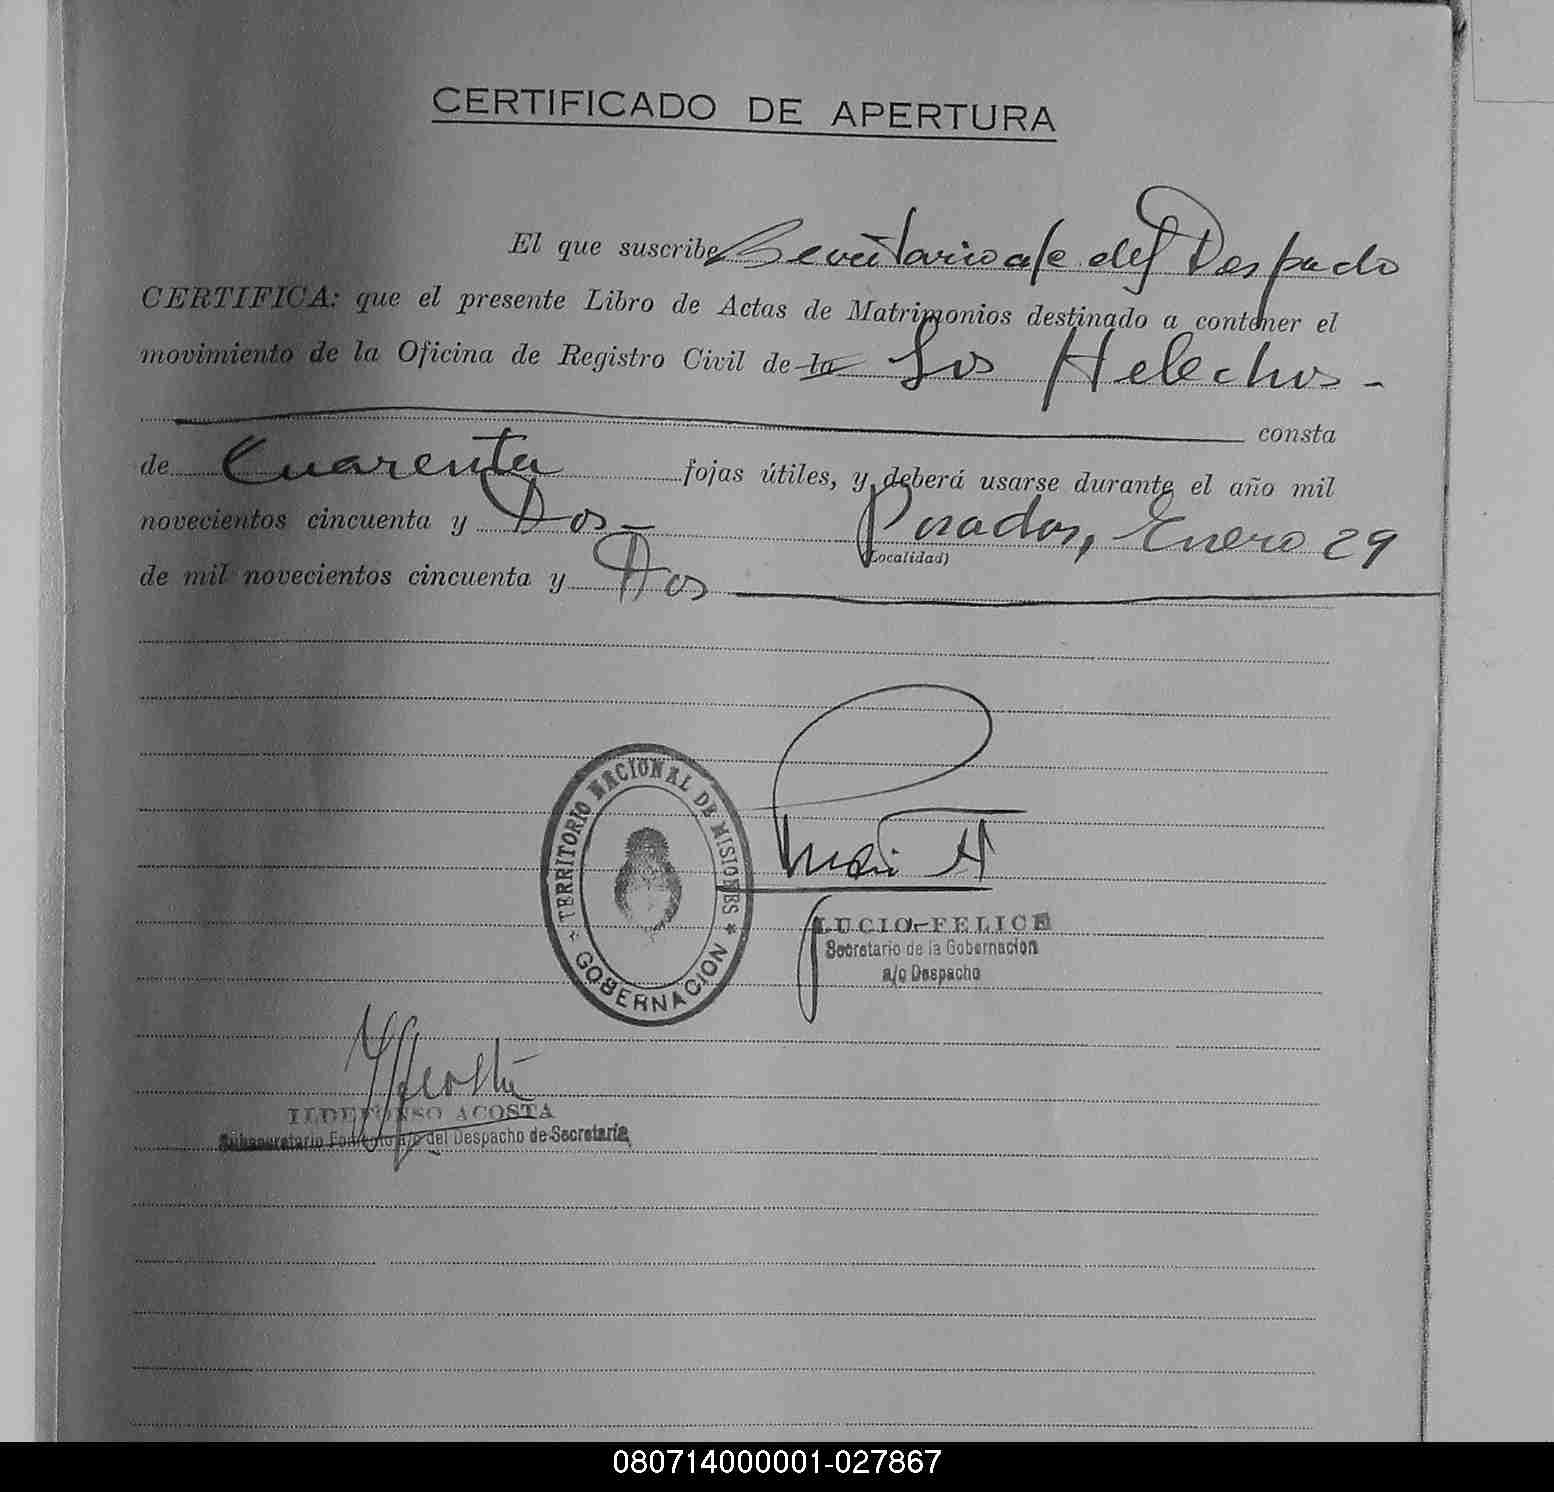 CERTIFICADO DE APERTURA
El que suscribe Secretario a/c del Despacho
CERTIFICA: que el presente Libro de Actas de Matrimonios destinado a contener el
movimiento de la Oficina de Registro Civil de la Los Helechos -
consta
de Cuarenta fojas útiles, y deberá usarse durante el año mil
novecientos cincuenta y Dos - Posadas, Enero 29
(Localidad)
de mil novecientos cincuenta y Dos
* TERRITORIO NACIONAL DE MISIONES *
GOBERNACION
LUCIO FELICE
Secretario de la Gobernacion
a/c Despacho
ILDEFONSO ACOSTA
Subsecretario Fomento a/c del Despacho de Secretaría
080714000001-027867